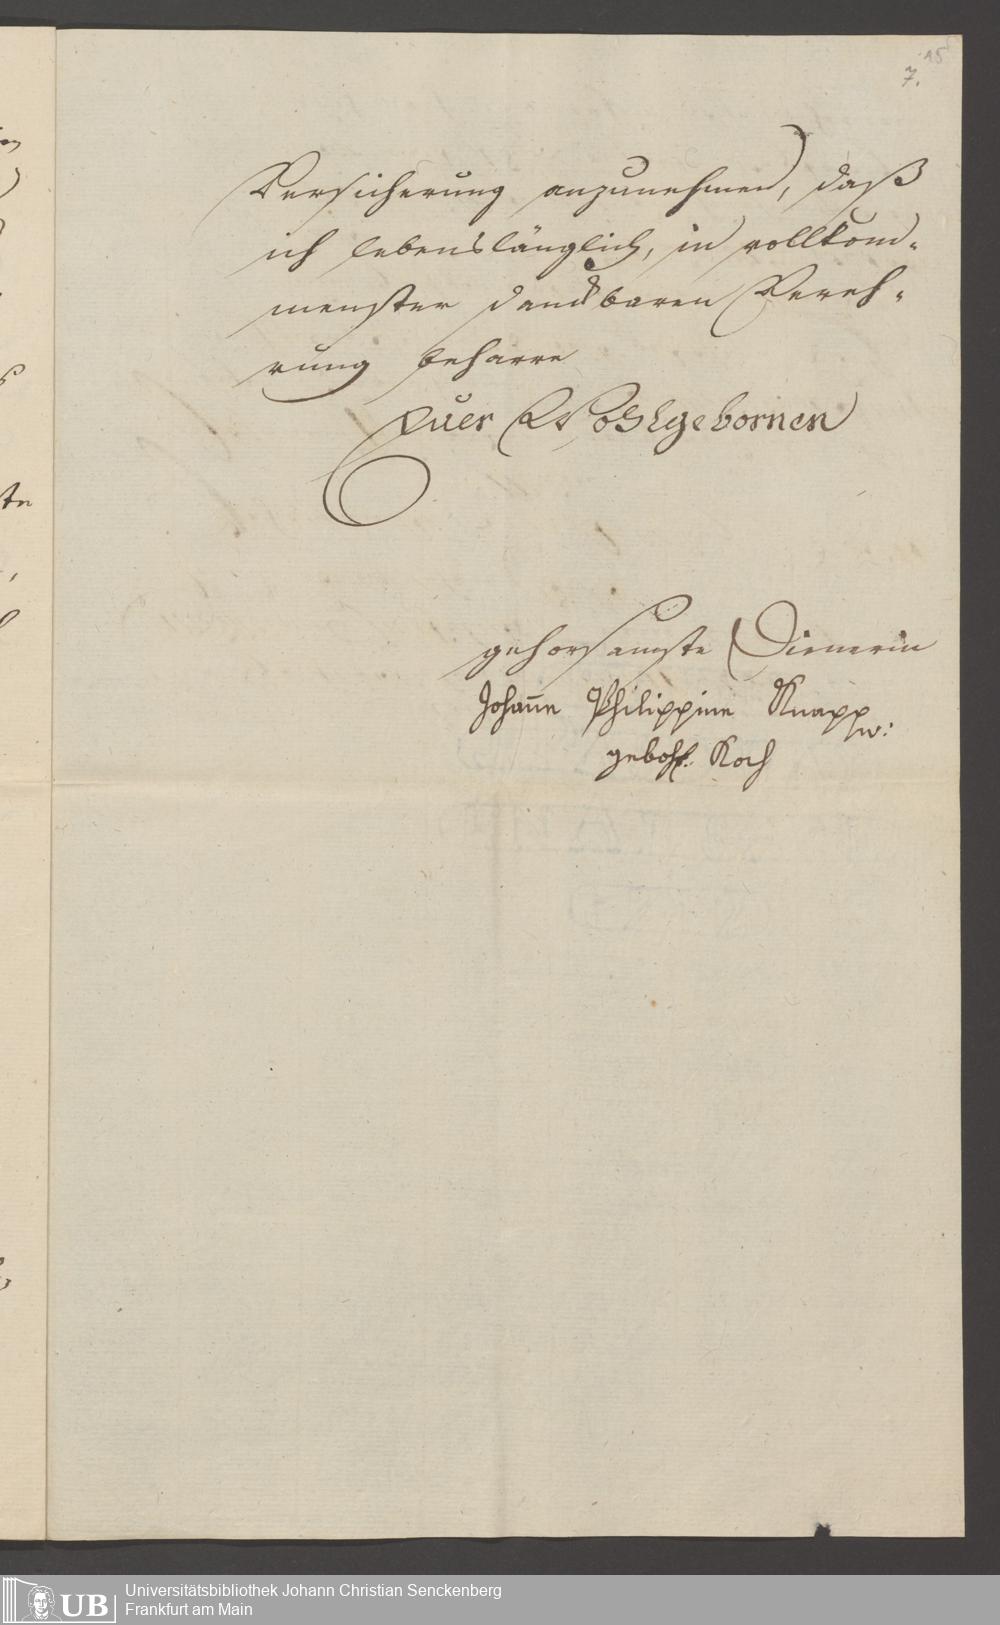 15
7.
Versicherung anzunehmen, daß
ich lebenslänglich, in vollkom-
menster danckbaren Vereh-
rung beharre
Euer Wohlgebornen
gehorsamste Dienerin
Johan̅e Philippine Knapp w:
gebohr. Koch
UB
Universitätsbibliothek Johann Christian Senckenberg
Frankfurt am Main